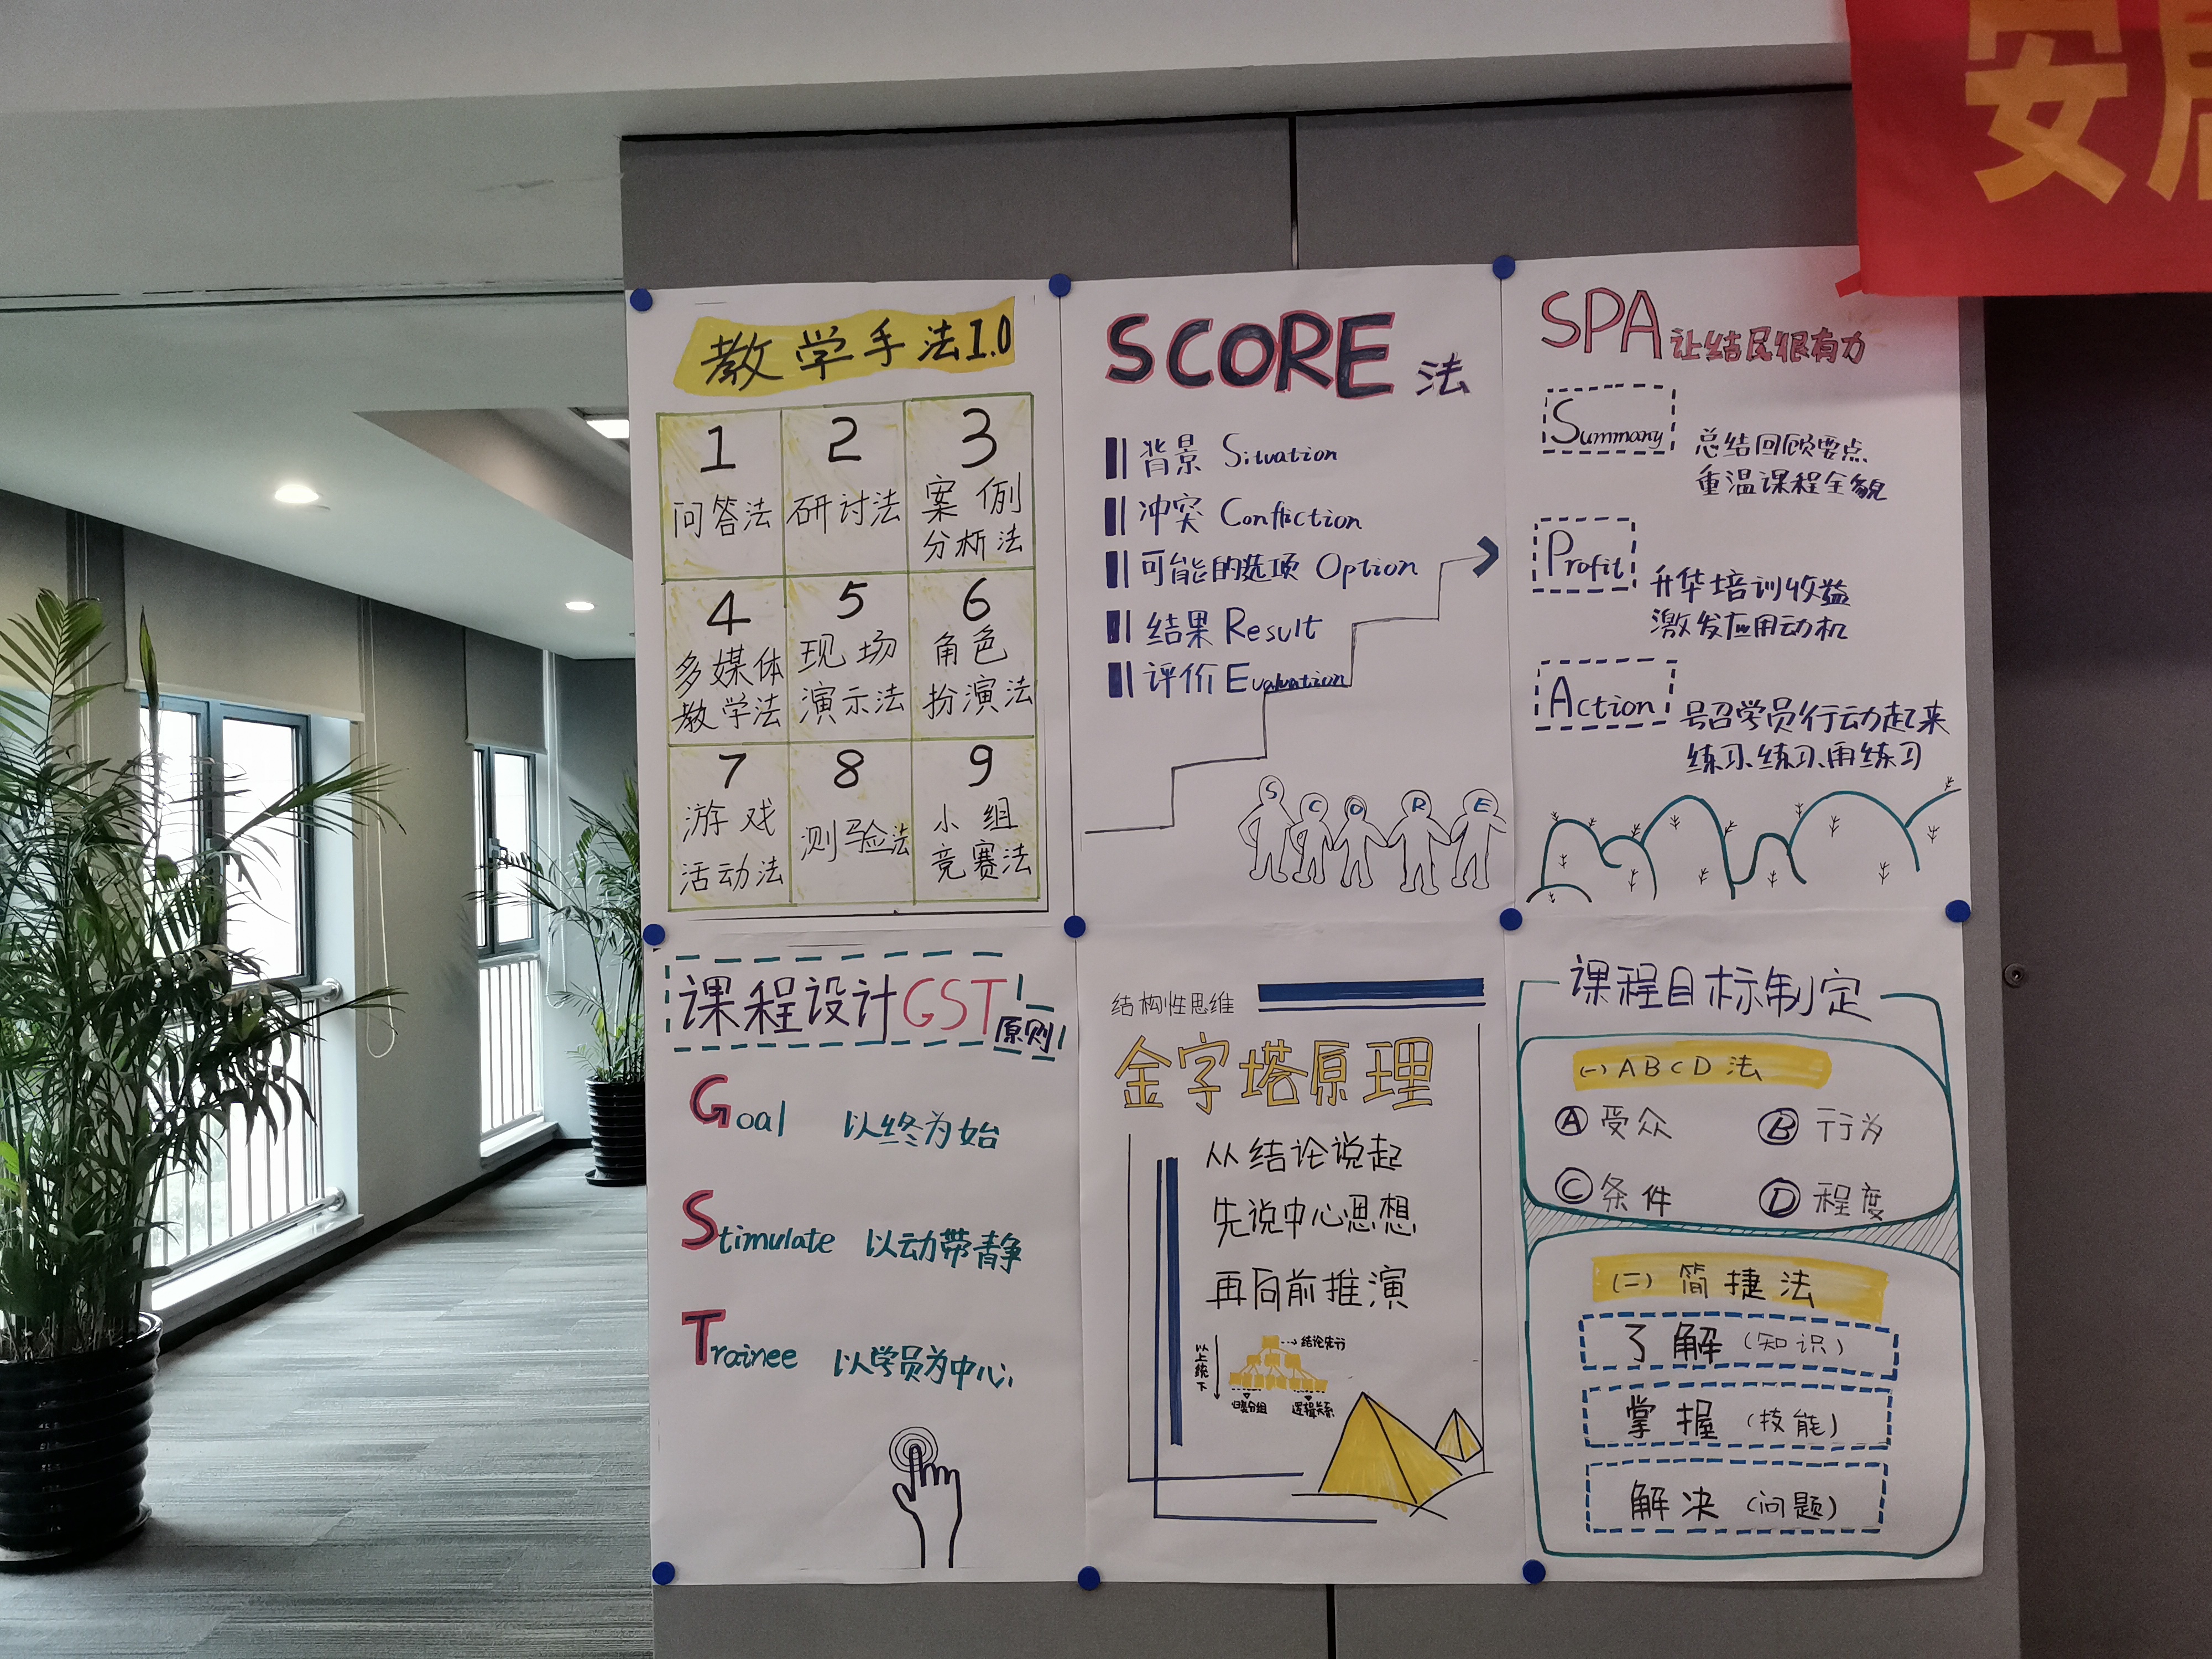 安
教学手法1.0
1
问答法
2
研讨法
3
案例
分析法
4
多媒体
教学法
5
现场
演示法
6
角色
扮演法
7
游戏
活动法
8
测验法
9
小组
竞赛法
SCORE 法
背景 Situation
冲突 Confliction
可能的选项 Option
结果 Result
评价 Evaluation
S C O R E
SPA 让结尾很有力
Summary
总结回顾要点
重温课程全貌
Profit
升华培训收益
激发应用动机
Action
号召学员行动起来
练习、练习、再练习
课程设计GST原则
Goal 以终为始
Stimulate 以动带静
Trainee 以学员为中心
结构性思维
金字塔原理
从结论说起
先说中心思想
再向前推演
结论先行
以上统下
归类分组
逻辑关系
课程目标制定
(一) ABCD法
A 受众
B 行为
C 条件
D 程度
(二) 简捷法
了解 (知识)
掌握 (技能)
解决 (问题)